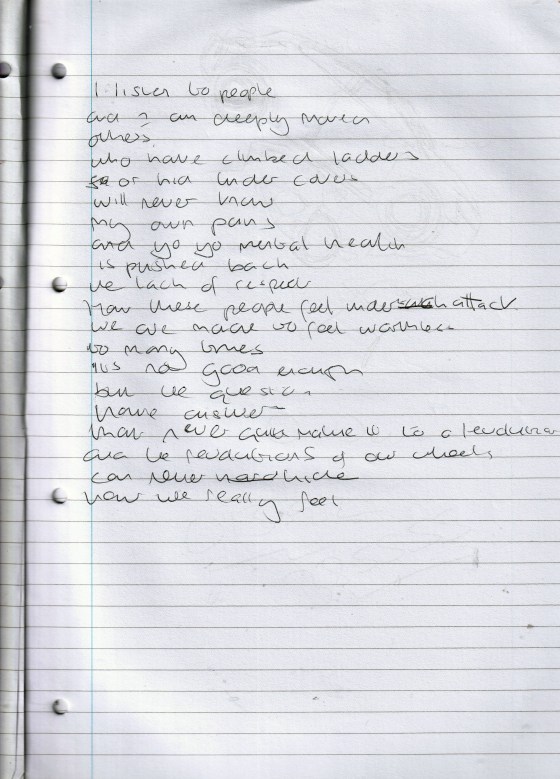 I listen to people
and I am deeply moved
others
who have climbed ladders
or hid under covers
will never know
my own pains
and yo yo mental health
is pushed back
the lack of respect
these people feel under attack
we are made to feel worthless
too many times
its not good enough
but the questions
have answers
that never quite make it to a revolution
and the revolutions of our wheels
can never hide
how we really feel